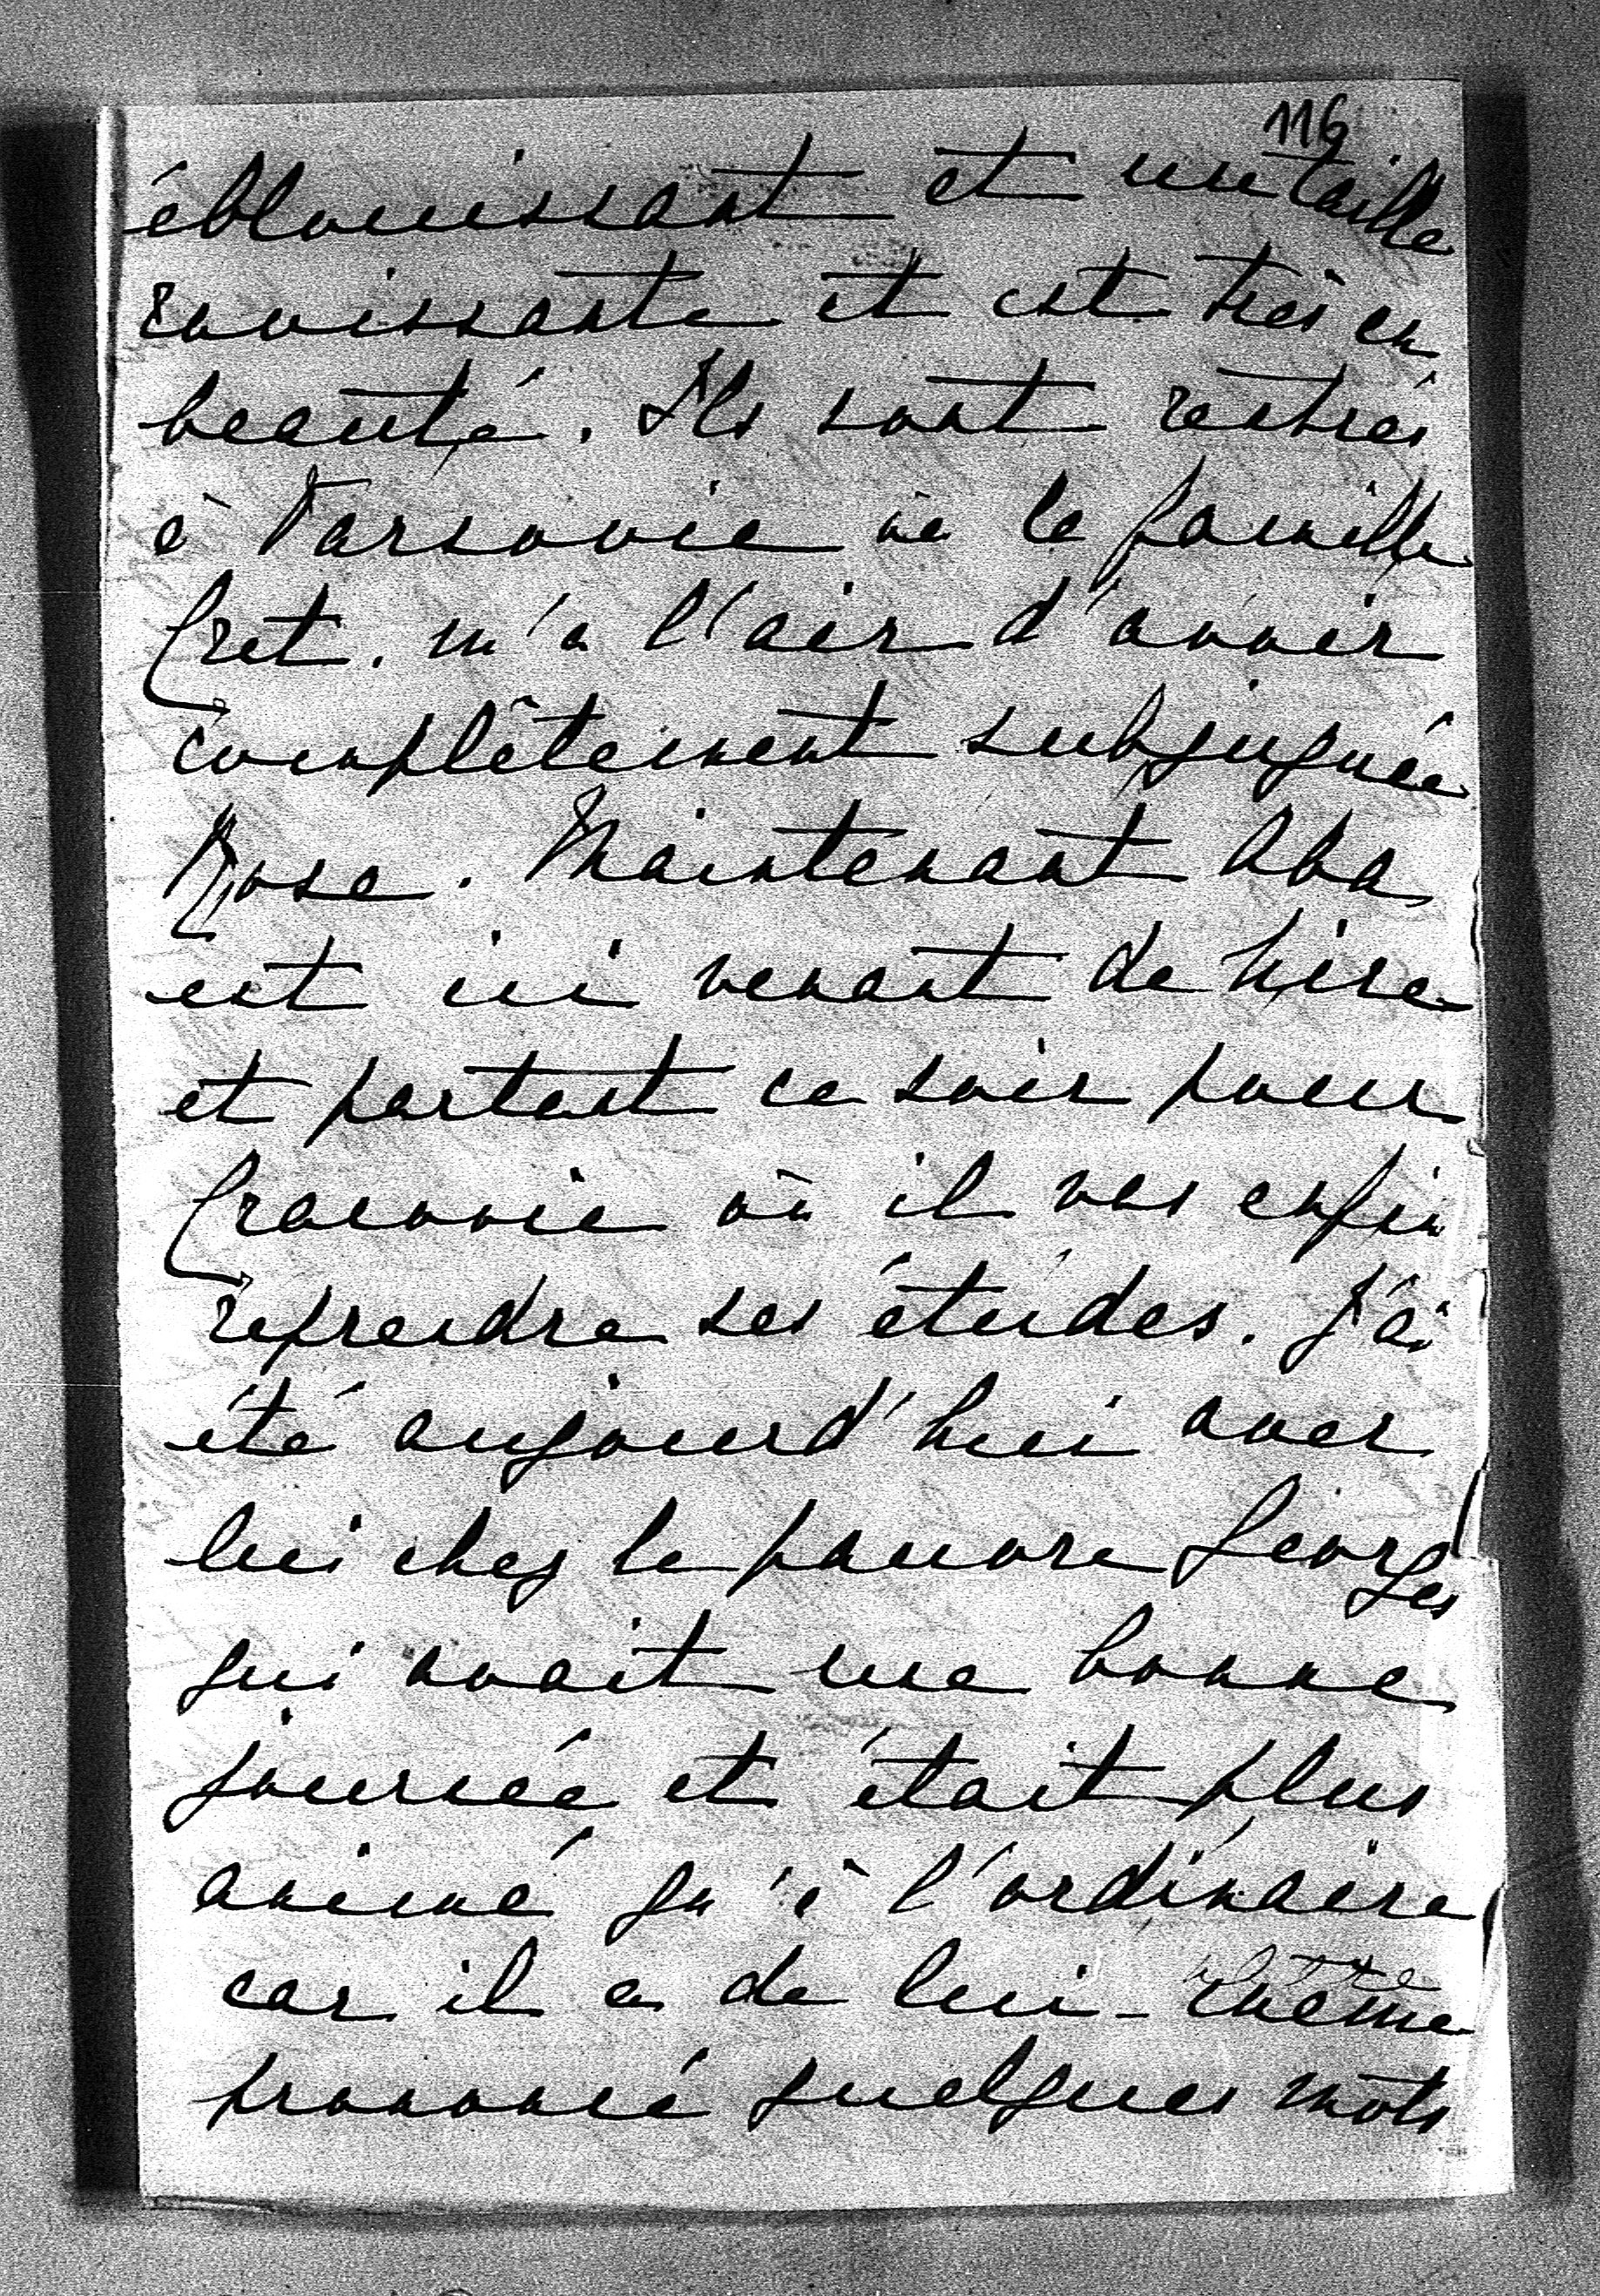 116
éblouissant et une taille
ravissante et est très en
beauté. Ils sont rentrés
à Varsovie où la famille
Cret. m'a l'air d'avoir
complêtement subjuguée
Rose. Maintenant Aba
est ici venant de
et partant ce soir pour
Cracovie où il vas enfin
reprendre ses études. J'ai
été aujourd'hui avec
lui chez le pauvre Georges
qui avait une bonne
journée et était plus
animé qu'à l'ordinaire
car il a de lui-même
prononcé quelques mots